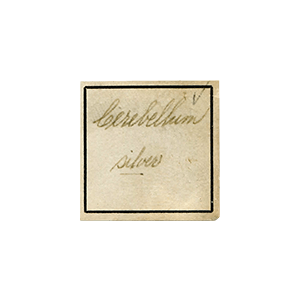 Cerebellum
silver